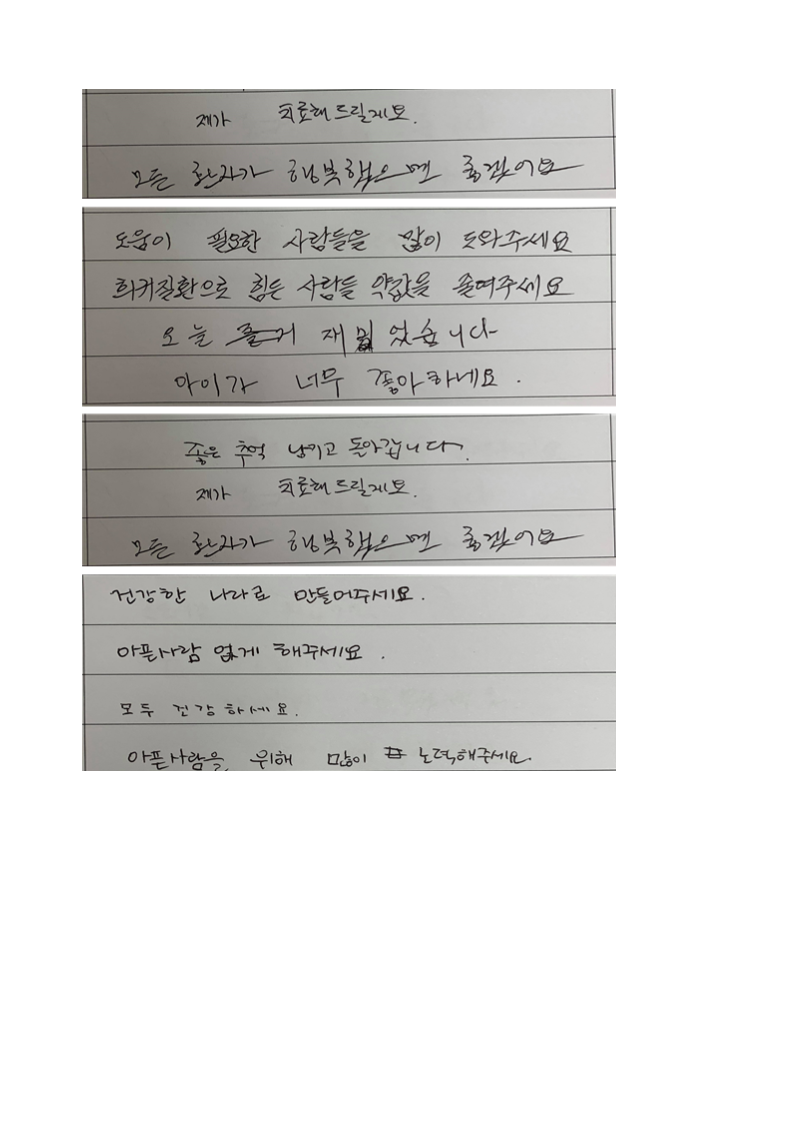 제가 치료해드릴게요.
모든 환자가 행복했으면 좋겠어요
도움이 필요한 사람들을 많이 도와주세요
희귀질환으로 힘든 사람들 약값을 줄여주세요
오늘 재밌었습니다
아이가 너무 좋아하네요.
좋은 추억 남기고 돌아갑니다.
제가 치료해드릴게요.
모든 환자가 행복했으면 좋겠어요
건강한 나라로 만들어주세요.
아픈사람 없게 해주세요.
모두 건강하세요.
아픈사람을 위해 많이 노력해주세요.